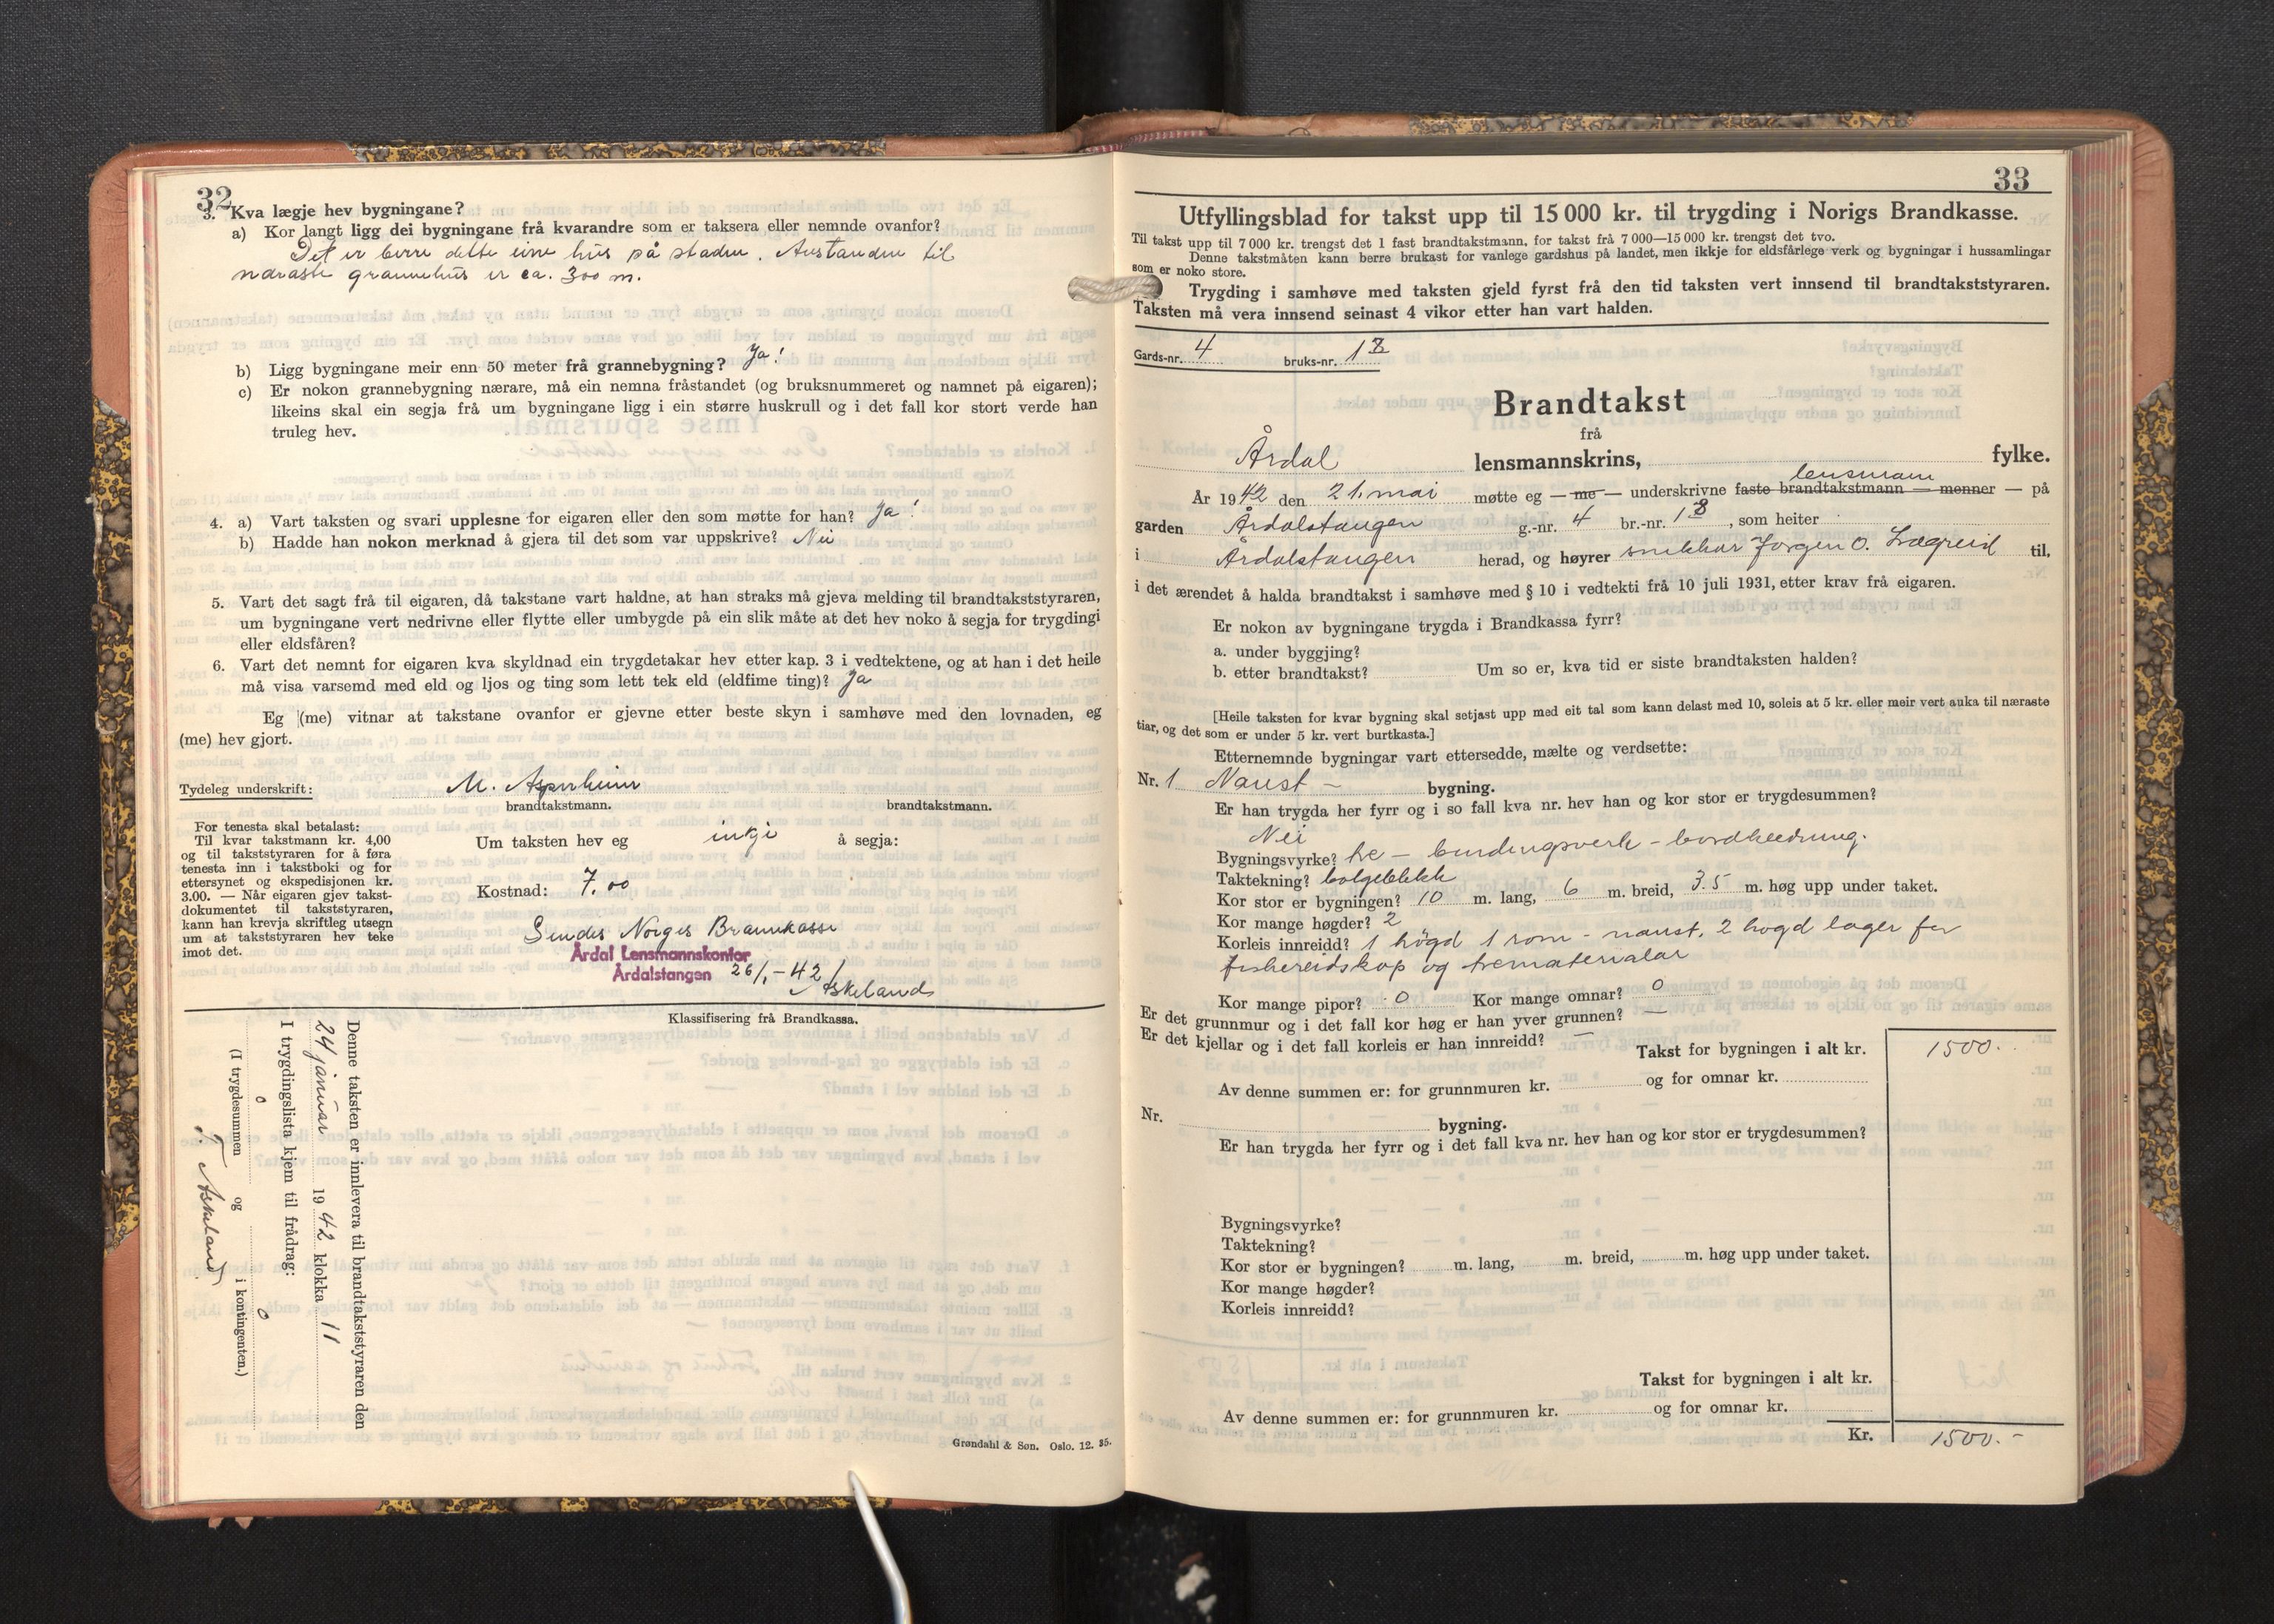 32
3. Kva lægje hev bygningane?
a) Kor langt ligg dei bygningane frå kvarandre som er taksera eller nemnde ovanfor?
Det er berre dette eine hus på staden. Avstanden til
næraste grannehus er ca. 300 m.
b) Ligg bygningane meir enn 50 meter frå grannebygning? Ja!
c) Er nokon grannebygning nærare, må ein nemna fråstandet (og bruksnummeret og namnet på eigaren);
likeins skal ein segja frå um bygningane ligg i ein større huskrull og i det fall kor stort verde han
truleg hev.
4. a) Vart taksten og svari upplesne for eigaren eller den som møtte for han? Ja!
b) Hadde han nokon merknad å gjera til det som var uppskrive? Nei
5. Vart det sagt frå til eigaren, då takstane vart haldne, at han straks må gjeva melding til brandtakststyraren,
um bygningane vert nedrivne eller flytte eller umbygde på ein slik måte at det hev noko å segja for trygdingi
eller eldsfåren?
6. Vart det nemnt for eigaren kva skyldnad ein trygdetakar hev etter kap. 3 i vedtektene, og at han i det heile
må visa varsemd med eld og ljos og ting som lett tek eld (eldfime ting)? Ja
Eg (me) vitnar at takstane ovanfor er gjevne etter beste skyn i samhøve med den lovnaden, eg
(me) hev gjort.
Tydeleg underskrift: M. Asperheim
brandtakstmann. brandtakstmann.
For tenesta skal betalast:
Til kvar takstmann kr. 4,00
og til takststyraren for å føra
tenesta inn i takstboki og for
ettersynet og ekspedisjonen kr.
3.00. — Når eigaren gjev takst-
dokumentet til takststyraren,
kann han krevja skriftleg utsegn
um at takststyraren hev teke
imot det.
Um taksten hev eg inkje å segja:
Kostnad: 7.00
Sendes Norges Brannkasse
Årdal Lensmannskontor
Årdalstangen 26/1-42
Askeland
Klassifisering frå Brandkassa.
Denne taksten er innlevera til brandtakststyraren den
24 januar 1942 klokka 11
I trygdingslista kjem til frådrag:
0 0
(I trygdesummen og i kontingenten.)
T. Askeland
Grøndahl & Søn. Oslo. 12. 35.
33
Utfyllingsblad for takst upp til 15 000 kr. til trygding i Norigs Brandkasse.
Til takst upp til 7 000 kr. trengst det 1 fast brandtakstmann, for takst frå 7 000—15 000 kr. trengst det tvo.
Denne takstmåten kann berre brukast for vanlege gardshus på landet, men ikkje for eldsfårlege verk og bygningar i hussamlingar
som er noko store.
Trygding i samhøve med taksten gjeld fyrst frå den tid taksten vert innsend til brandtakststyraren.
Taksten må vera innsend seinast 4 vikor etter han vart halden.
Gards-nr. 4 bruks-nr. 18
Brandtakst
frå
Årdal lensmannskrins, fylke.
lensmann
År 1942 den 21. mai møtte eg — me — underskrivne faste brandtakstmann — menner — på
garden Årdalstangen g.-nr. 4 br.-nr. 18, som heiter
i Årdalstangen herad, og høyrer snikkar Jørgen O. Lægreid til,
i det ærendet å halda brandtakst i samhøve med § 10 i vedtekti frå 10 juli 1931, etter krav frå eigaren.
Er nokon av bygningane trygda i Brandkassa fyrr?
a. under byggjing?
b. etter brandtakst? Um so er, kva tid er siste brandtaksten halden?
[Heile taksten for kvar bygning skal setjast upp med eit tal som kann delast med 10, soleis at 5 kr. eller meir vert auka til næraste
tiar, og det som er under 5 kr. vert burtkasta.]
Etternemnde bygningar vart ettersedde, mælte og verdsette:
Nr. 1 Naust - bygning.
Er han trygda her fyrr og i so fall kva nr. hev han og kor stor er trygdesummen?
Nei
Bygningsvyrke? tre - bindingsverk - bordkledning.
Taktekning? bølgeblekk
Kor stor er bygningen? 10 m. lang, 6 m. breid, 3.5 m. høg upp under taket.
Kor mange høgder? 2
Korleis innreidd? 1 högd 1 rom - naust, 2 högd lager for
fiskereidskap og trematerialar
Kor mange pipor? 0 Kor mange omnar? 0
Er det grunnmur og i det fall kor høg er han yver grunnen? —
Er det kjellar og i det fall korleis er han innreidd? —
Takst for bygningen i alt kr. 1500.-
Av denne summen er: for grunnmuren kr. og for omnar kr.
Nr. bygning.
Er han trygda her fyrr og i det fall kva nr. hev han og kor stor er trygdesummen?
Bygningsvyrke?
Taktekning?
Kor stor er bygningen? m. lang, m. breid, m. høg upp under taket.
Kor mange høgder?
Korleis innreidd?
Takst for bygningen i alt kr.
Av denne summen er: for grunnmuren kr. og for omnar kr.
Kr. 1500.-